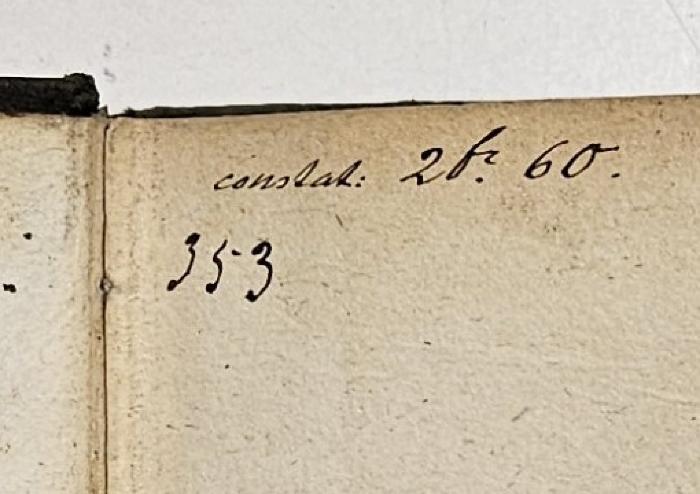 constat: 2 fr. 60.
353